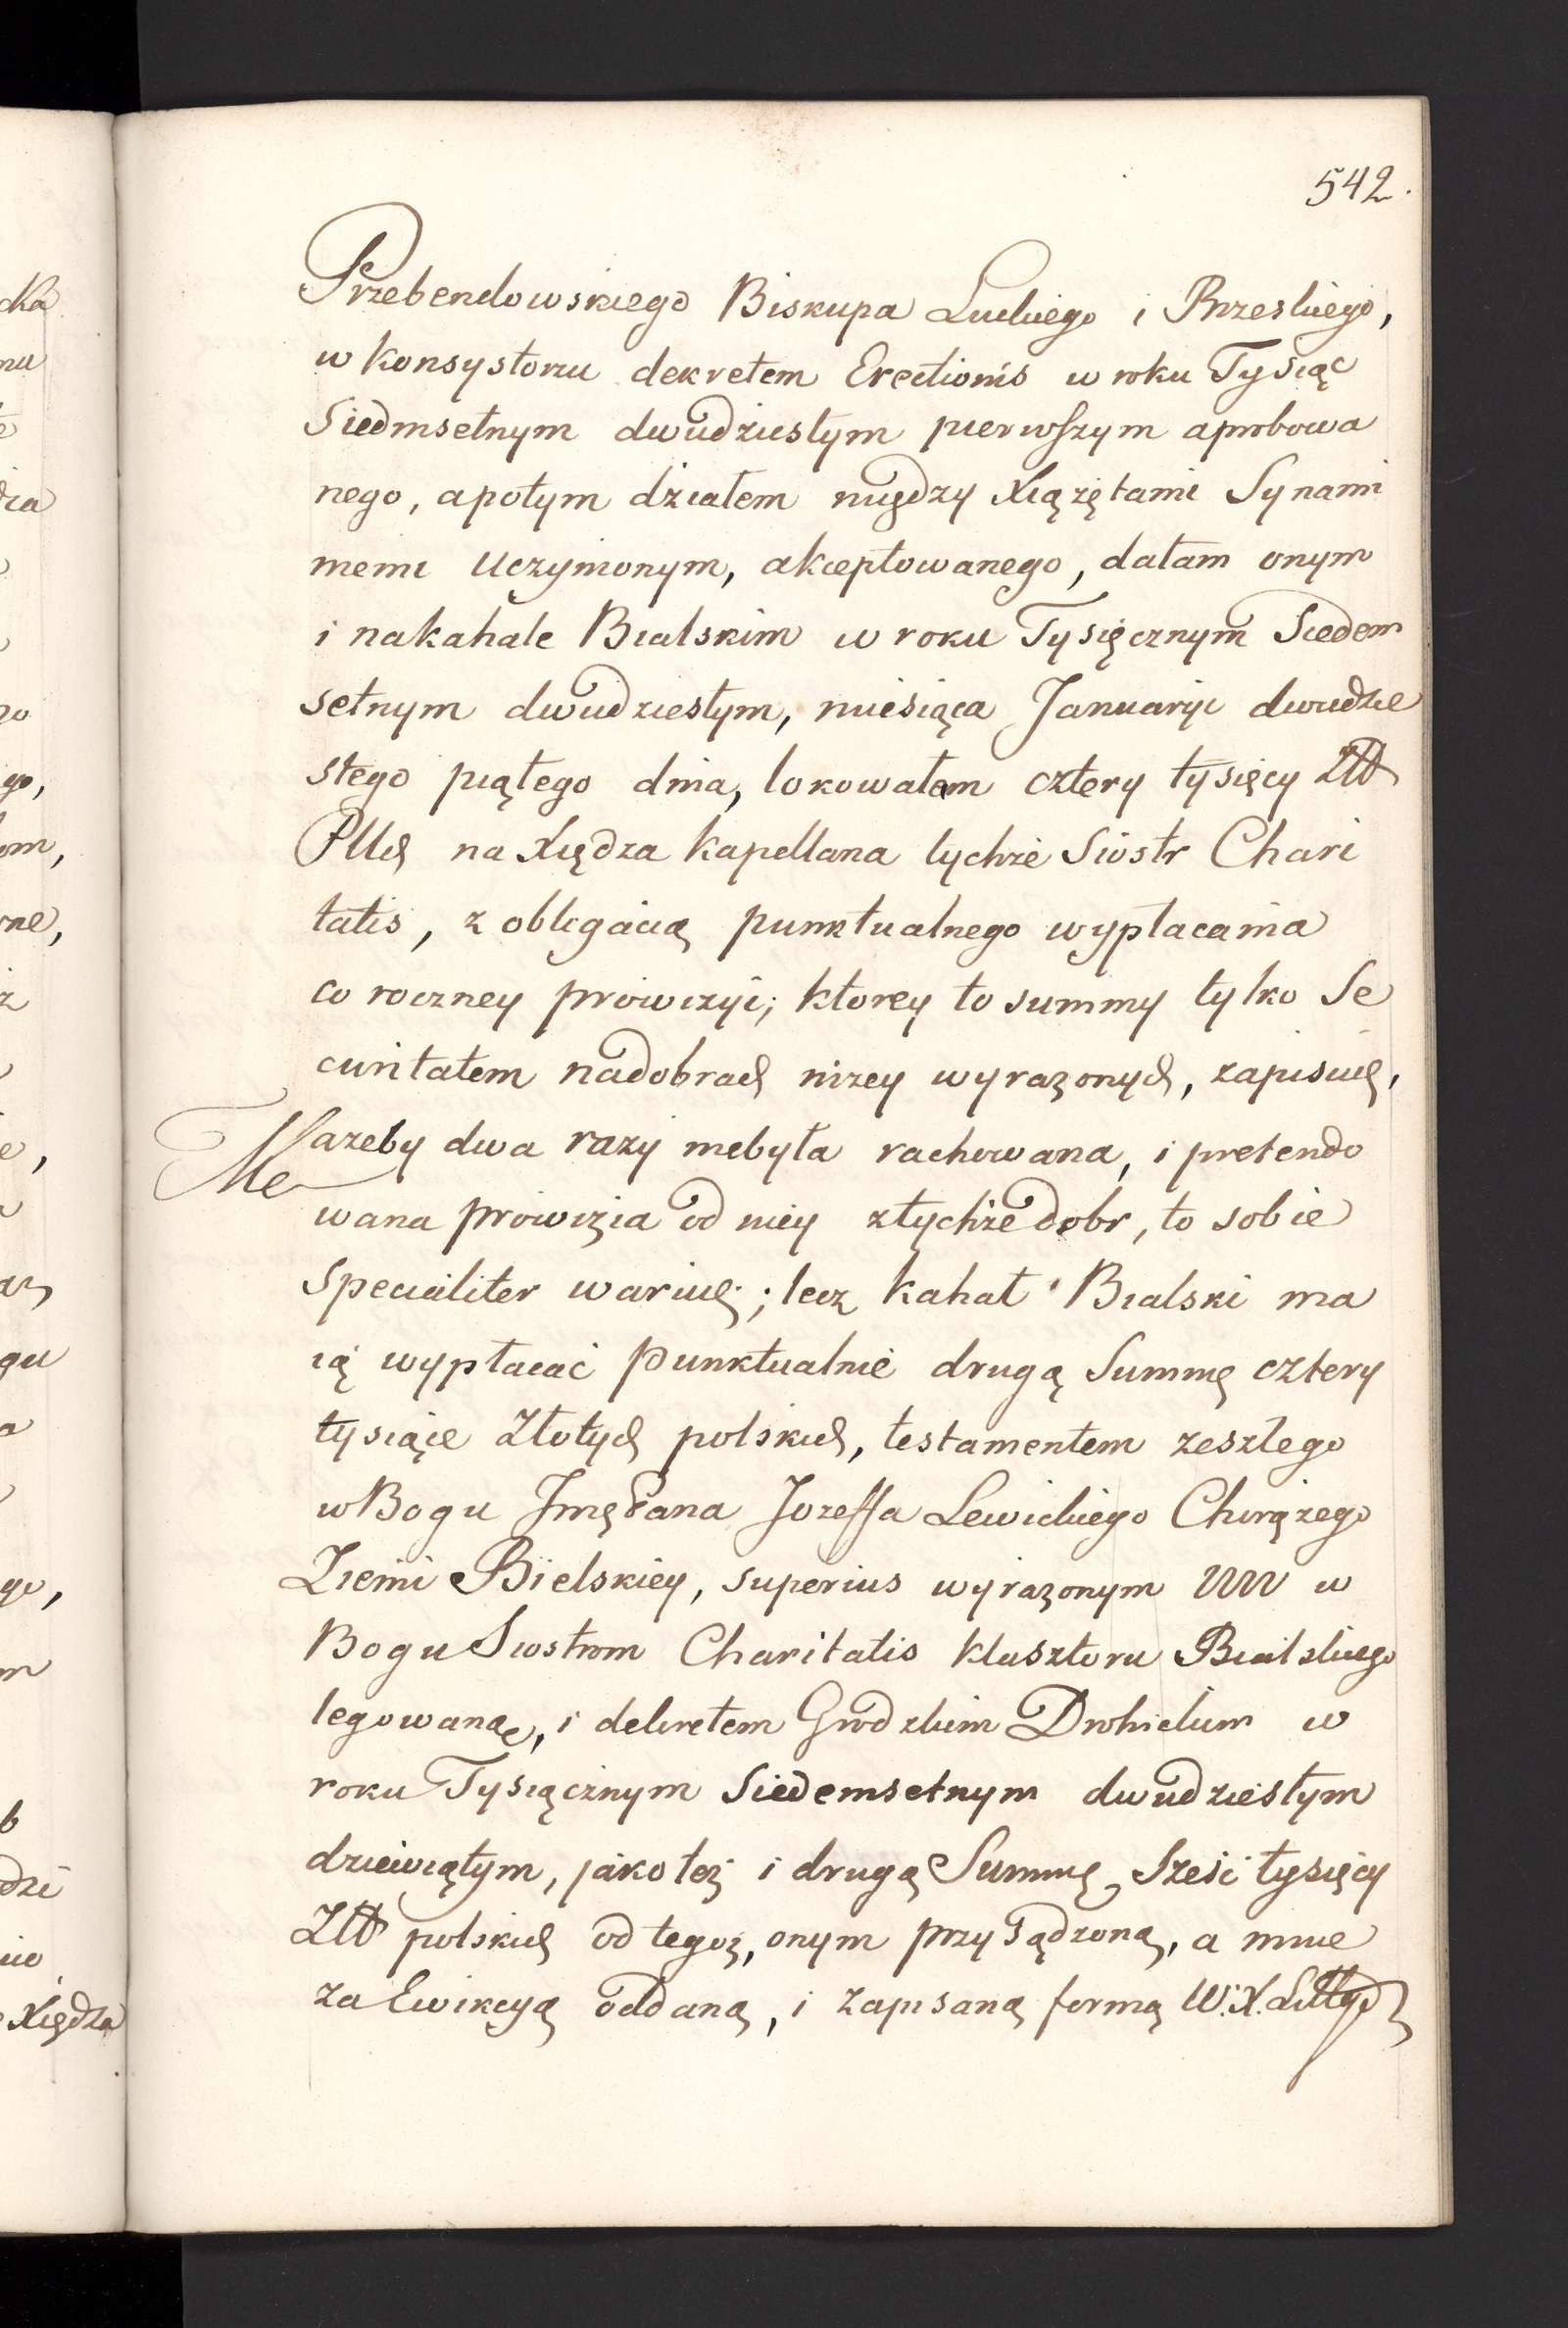 542.
Przebendowskiego Biskupa Luckiego i Brzeskiego,
w Konsystorzu dekretem Erectionis w roku Tysiąc
Siedmsetnym dwudziestym pierwszym aprobowa
nego, a potym działem między Xiążętami Synami
memi Uczynionym, akceptowanego, dałam onym
i na kahale Bialskim w roku Tysięcznym Siedem
setnym dwudziestym, miesiąca Januaryi dwudzie
stego piątego dnia, lokowałam cztery tysięcy Złł
Pllch na Xiędza Kapellana tychże Siostr Chari
tatis, z obligacią punktualnego wypłacania
co roczney prowizyi; ktorey to summy tylko Se
curitatem na dobrach niżey wyrazonych, zapisuię,
ażeby dwa razy niebyła rachowana, i pretendo
wana prowizia od niey z tychże dobr, to sobie
specialiter waruię; lecz Kahał Bialski ma
ią wypłacać punktualnie drugą Summę cztery
tysiące Złotych polskich, testamentem zeszłego
w Bogu Jmę Pana Jozeffa Lewickiego Chorążego
Ziemi Bielskiey, superius wyrazonym WW w
Bogu Siostrom Charitatis Klasztoru Bialskiego
legowaną, i dekretem Grodzkim Drohickim w
roku Tysiącznym Siedemsetnym dwudziestym
dziewiątym, jako też i drugą Summę, Sześć tysięcy
Złł polskich od tegoż, onym przysądzoną, a mnie
za Ewikcyą oddaną, i zapisaną formą W. X. Littgo